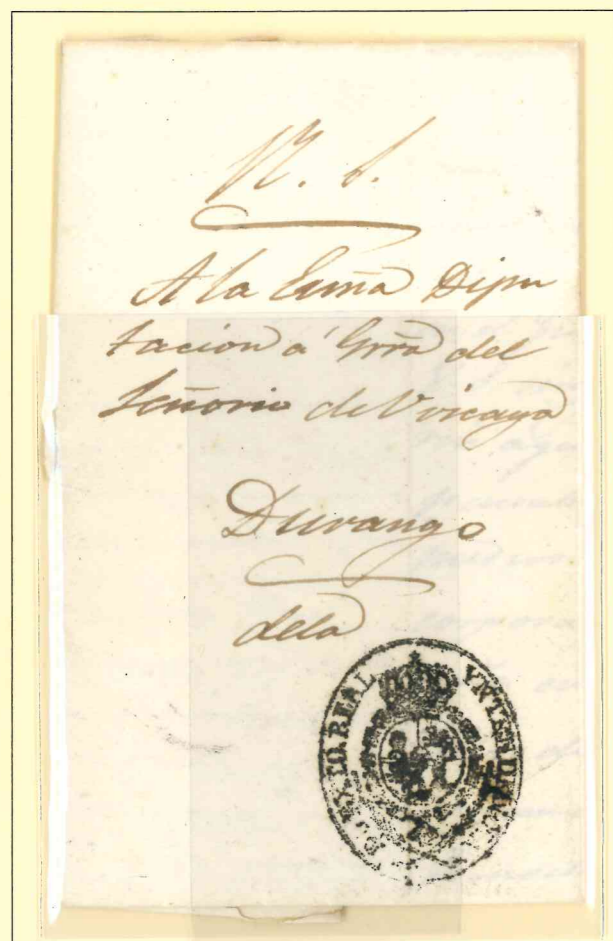 R. S.
A la Exmã Dipu
tacion á Grrã del
Señorio de Vizcaya
Durango
dela
REAL YNTENDENCIA